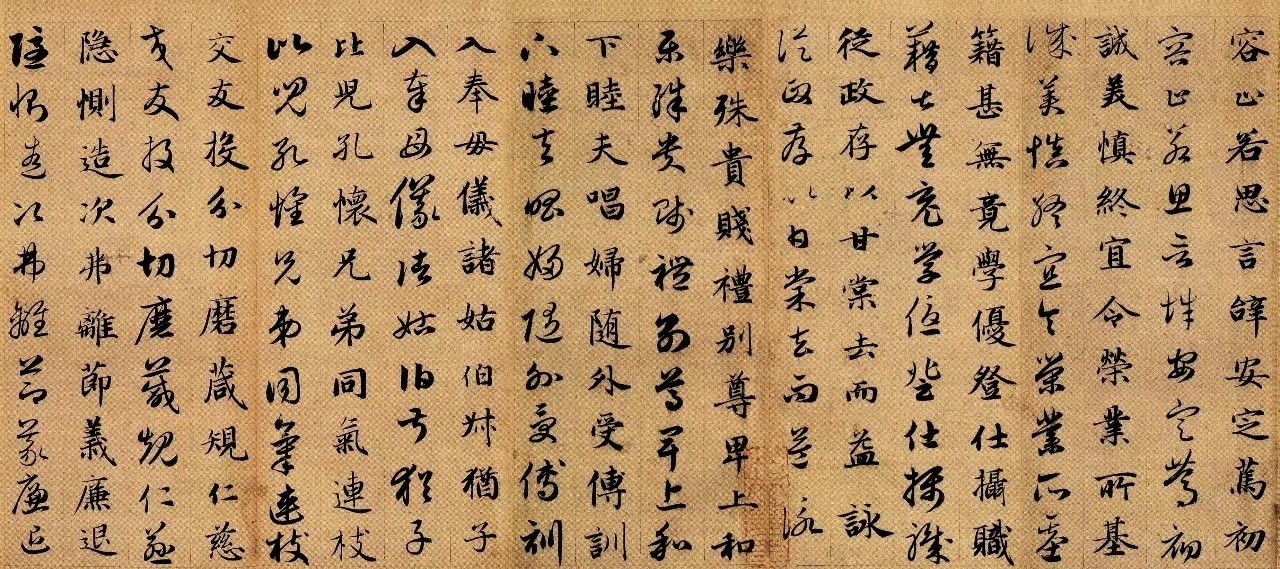 容止若思言辝安定篤初
容止若思言辝安定篤初
誠美慎終宜令榮業所基
誠美慎終宜令榮業所基
籍甚無竟學優登仕攝職
籍甚無竟學優登仕攝職
從政存以甘棠去而益詠
從政存以甘棠去而益詠
樂殊貴賤禮別尊卑上和
樂殊貴賤禮別尊卑上和
下睦夫唱婦随外受傅訓
下睦夫唱婦随外受傅訓
入奉母儀諸姑伯叔猶子
入奉母儀諸姑伯叔猶子
比兒孔懷兄弟同氣連枝
比兒孔懷兄弟同氣連枝
交友投分切磨箴規仁慈
交友投分切磨箴規仁慈
隐惻造次弗離節義廉退
隐惻造次弗離節義廉退